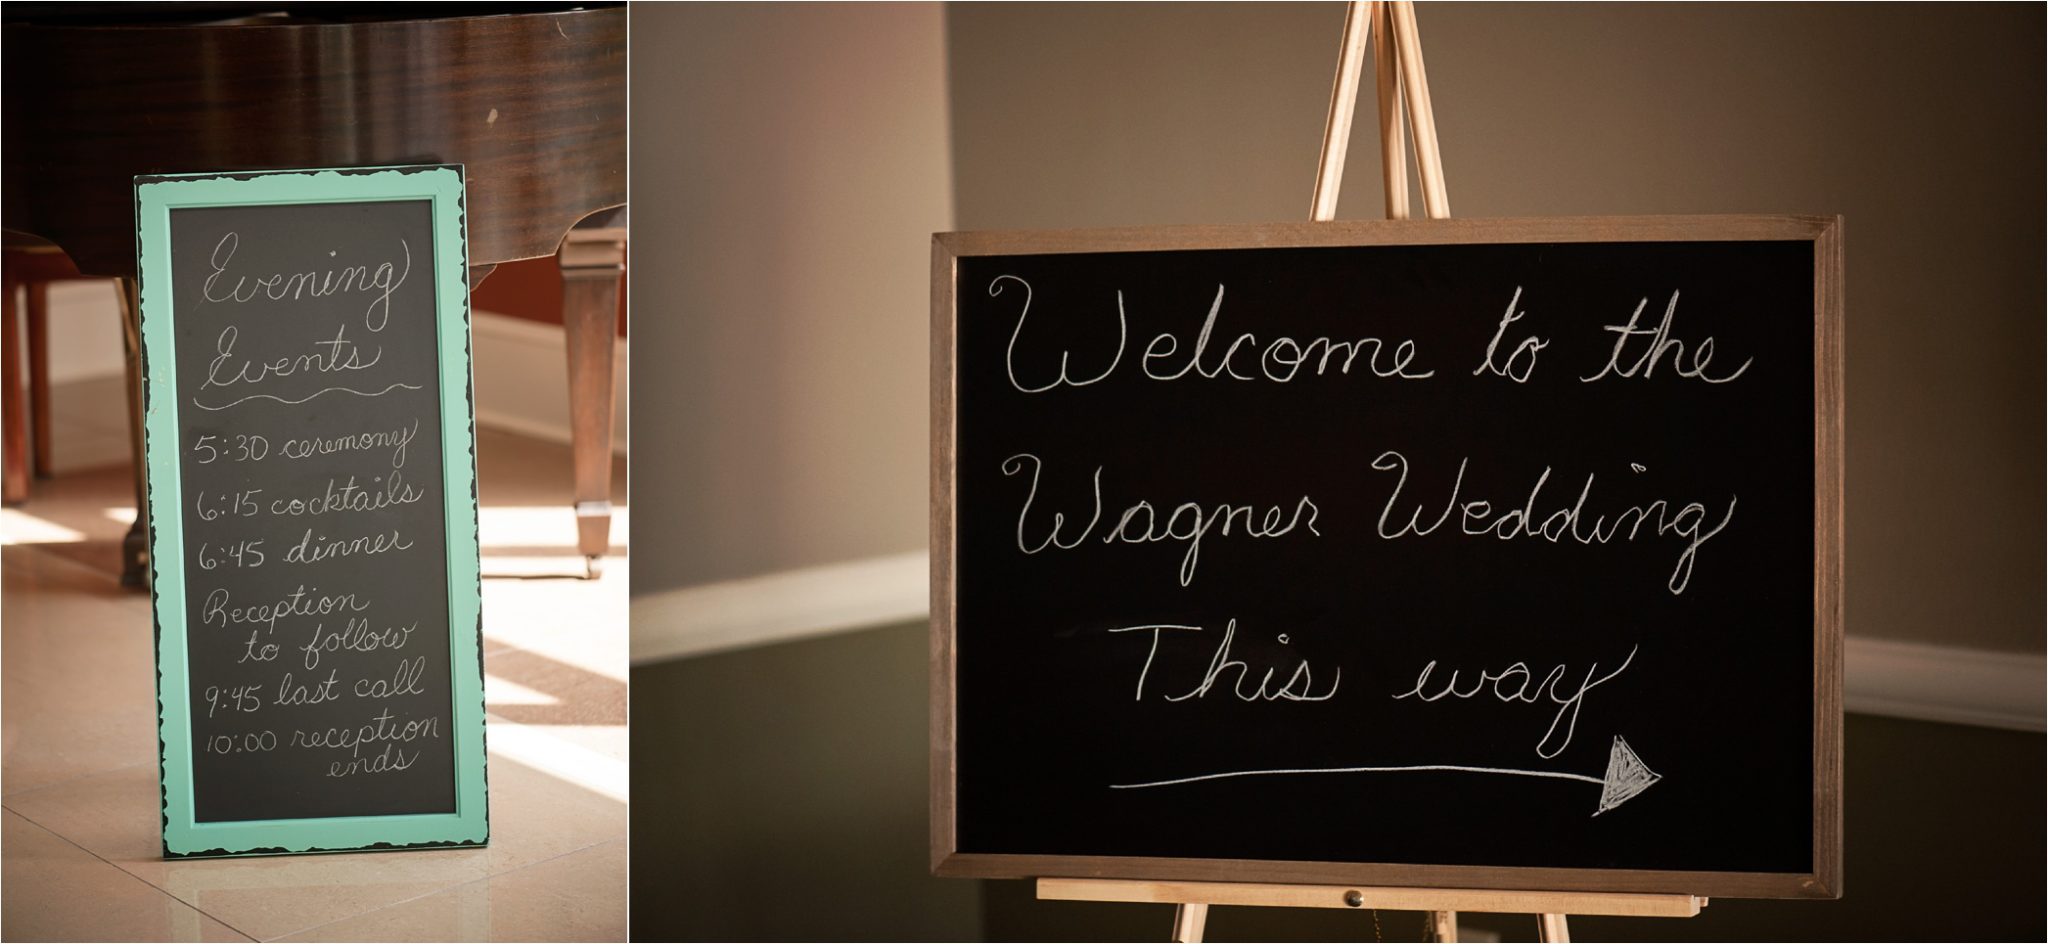 Evening
Events
5:30 ceremony
6:15 cocktails
6:45 dinner
Reception
to follow
9:45 last call
10:00 reception
ends
Welcome to the
Wagner Wedding
This way